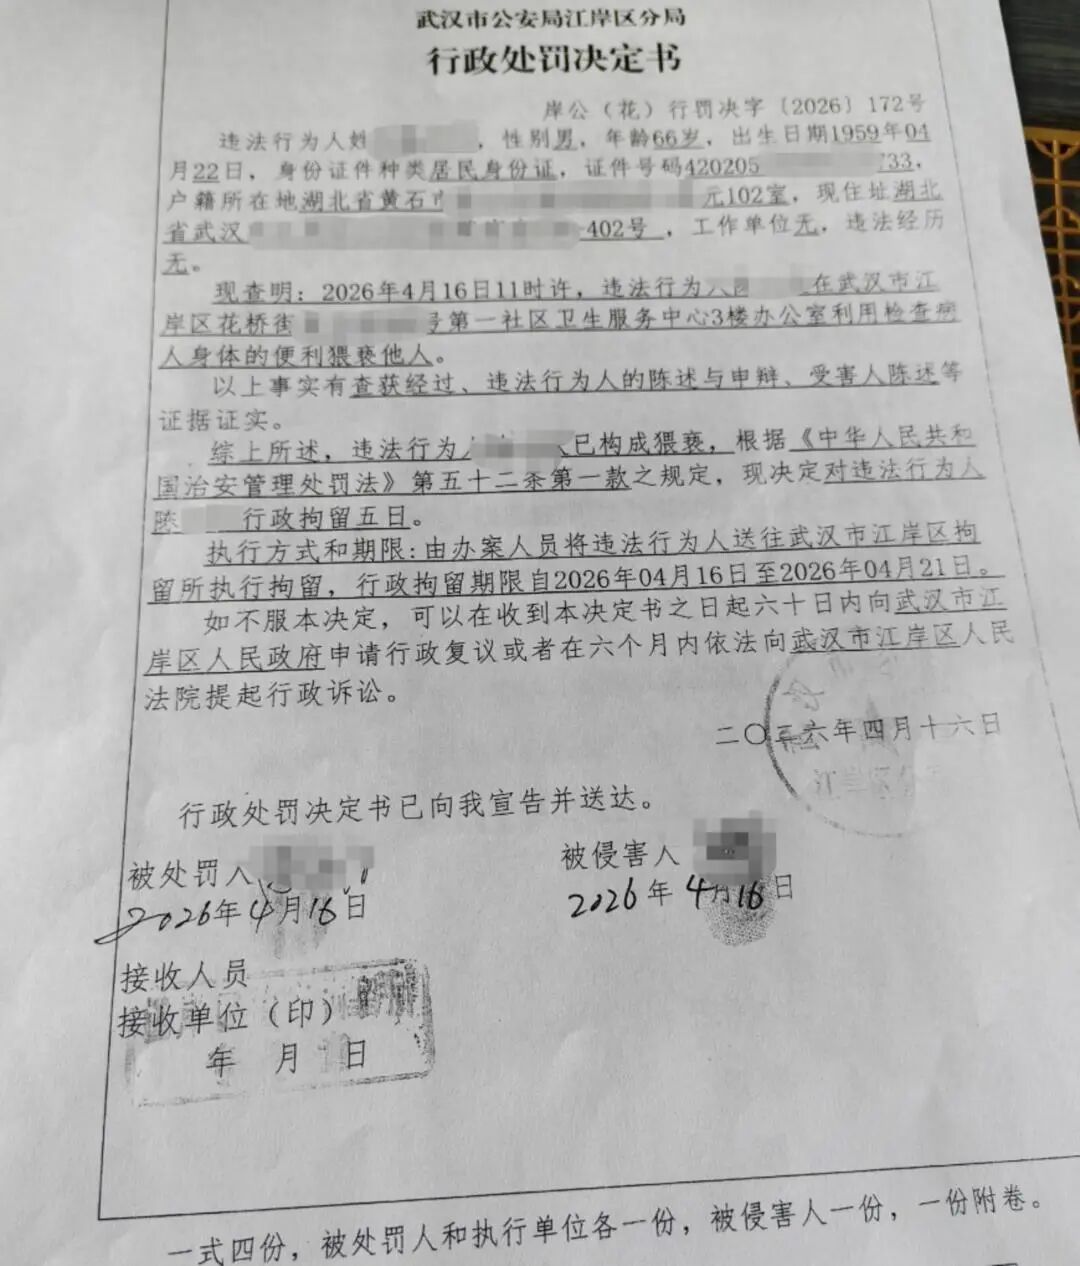 武汉市公安局江岸区分局
行政处罚决定书
岸公（花）行罚决字〔2026〕172号
违法行为人姓 ，性别男，年龄66岁，出生日期1959年04
月22日，身份证件种类居民身份证，证件号码420205 733，
户籍所在地湖北省黄石 元102室，现住址湖北
省武汉 402号，工作单位无，违法经历
无。
现查明：2026年4月16日11时许，违法行为 在武汉市江
岸区花桥街 号第一社区卫生服务中心3楼办公室利用检查病
人身体的便利猥亵他人。
以上事实有查获经过、违法行为人的陈述与申辩、受害人陈述等
证据证实。
综上所述，违法行为人 已构成猥亵，根据《中华人民共和
国治安管理处罚法》第五十二条第一款之规定，现决定对违法行为人
陈 行政拘留五日。
执行方式和期限：由办案人员将违法行为人送往武汉市江岸区拘
留所执行拘留，行政拘留期限自2026年04月16日至2026年04月21日。
如不服本决定，可以在收到本决定书之日起六十日内向武汉市江
岸区人民政府申请行政复议或者在六个月内依法向武汉市江岸区人民
法院提起行政诉讼。
二〇二六年四月十六日
江岸区分
行政处罚决定书已向我宣告并送达。
被处罚人 被侵害人
2026年4月16日 2026年4月16日
接收人员
接收单位（印）
年 月 日
一式四份，被处罚人和执行单位各一份，被侵害人一份，一份附卷。